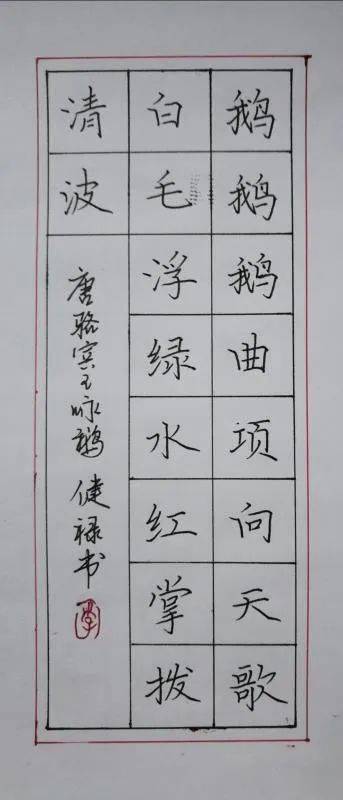 鹅鹅鹅曲项向天歌
白毛浮绿水红掌拨
清波
唐骆宾王咏鹅 健禄书
李